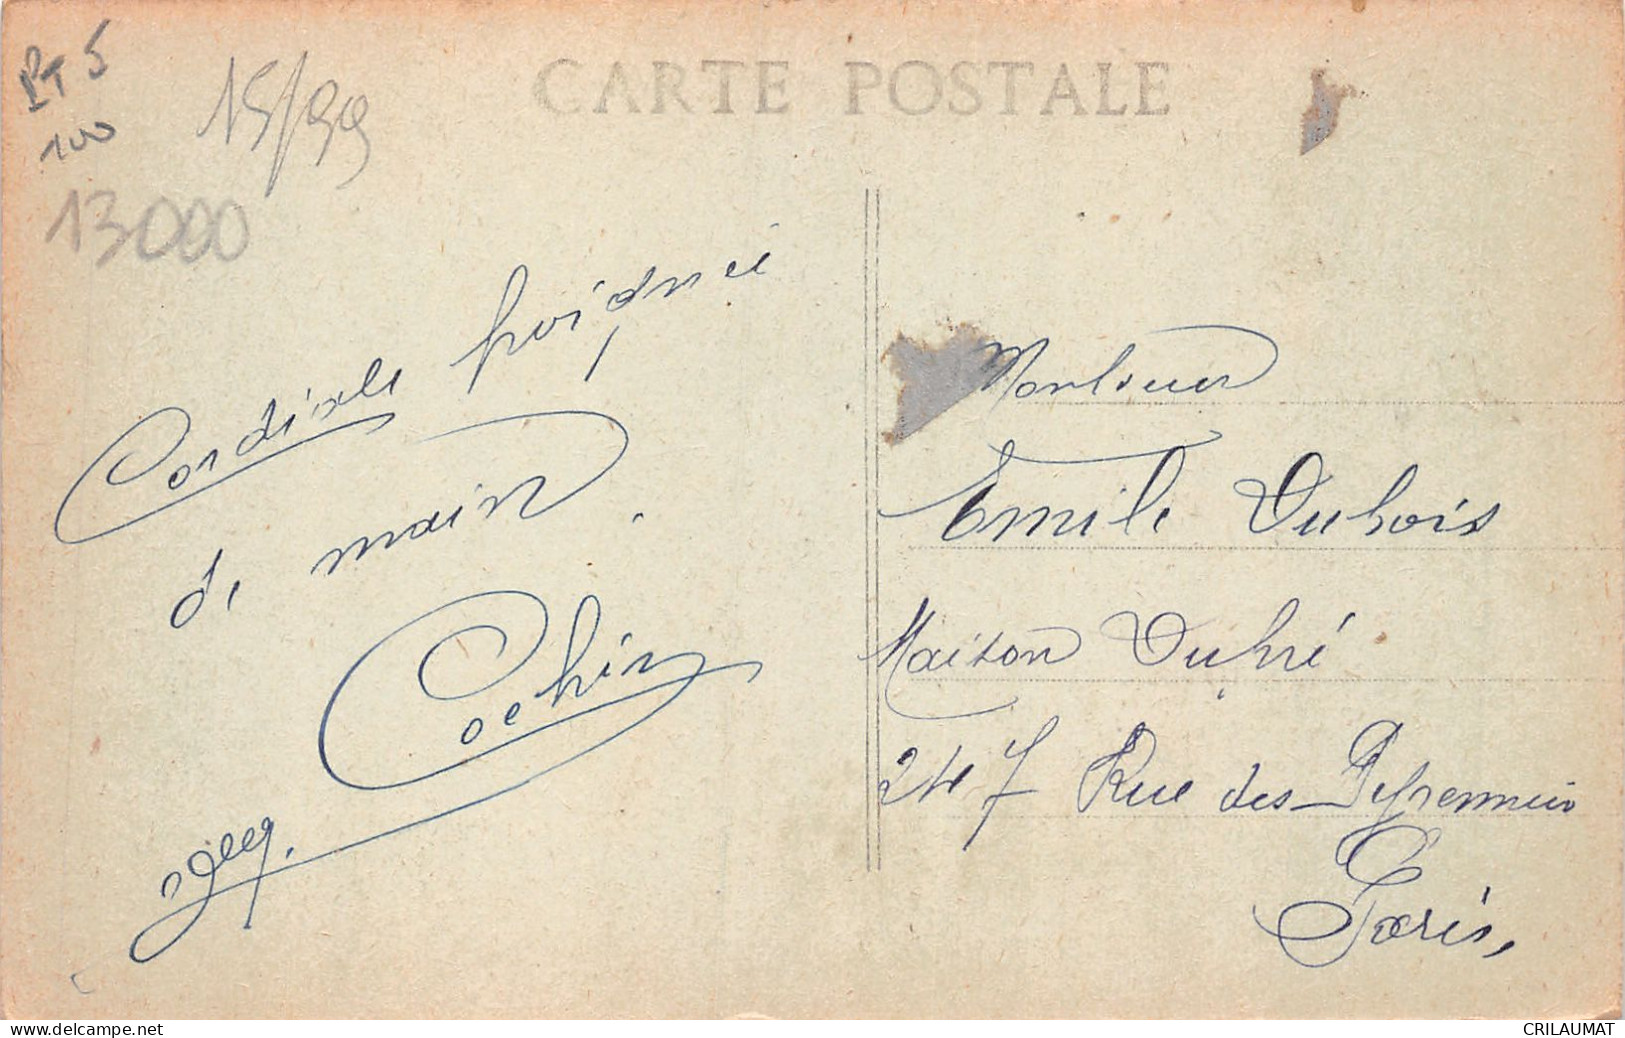 CARTE POSTALE
PT 5
100
15/99
13000
Cordiale poignée
de main.
Cochin
Monsieur
Emile Dubois
Maison Dupré
247 Rue des Peyrenneis
Paris,
www.delcampe.net
CRILAUMAT